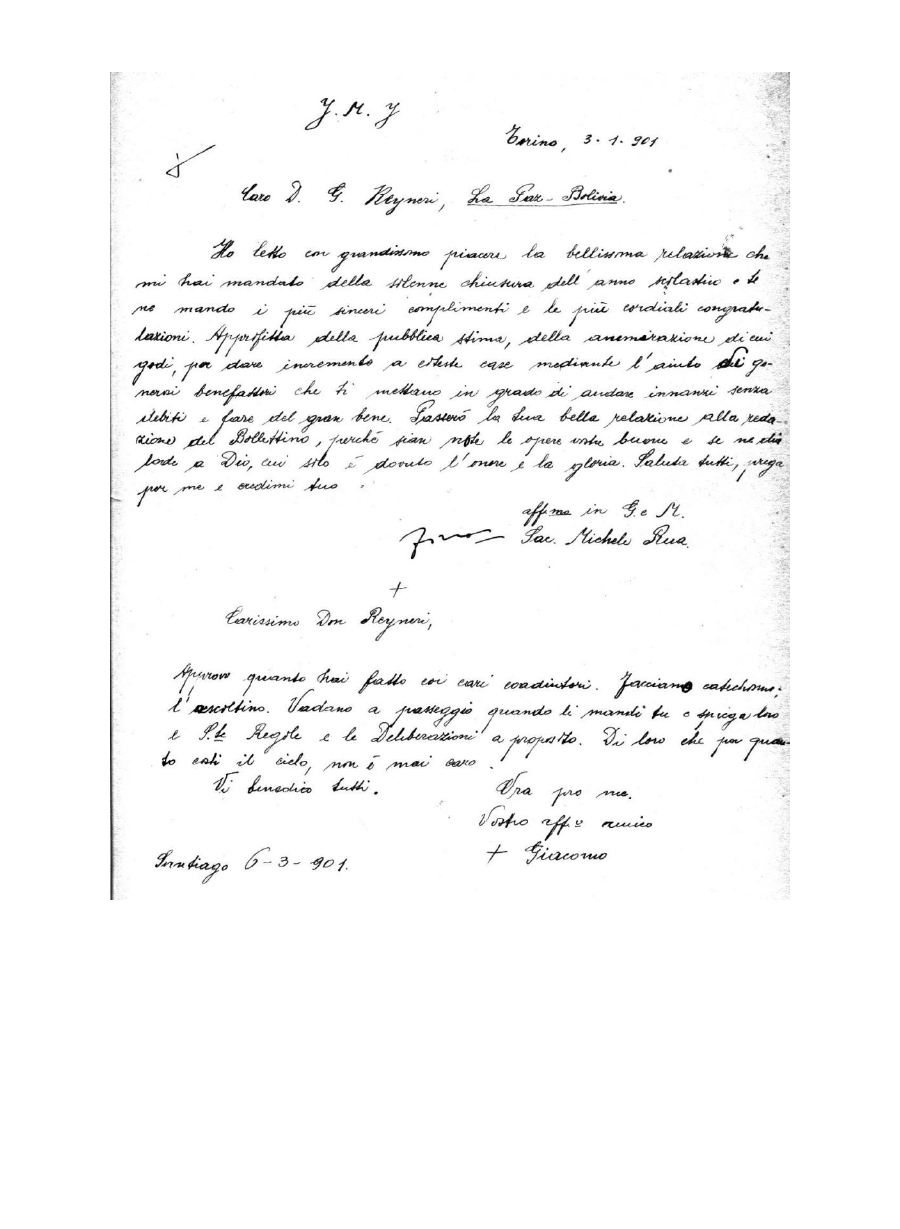 J. M. J
Torino, 3-1-901
Caro D. G. Reyneri, La Paz-Bolivia.
Ho letto con grandissimo piacere la bellissima relazione che
mi hai mandato della solenne chiusura dell' anno scolastico e te
ne mando i più sinceri complimenti e le più cordiali congratu-
lazioni. Approfitta della pubblica stima, della ammirazione di cui
godi, per dare incremento a coteste case mediante l'aiuto dei ge-
nerosi benefattori che ti mettano in grado di andare innanzi senza
debiti e fare del gran bene. Passerò la tua bella relazione alla reda-
zione del Bollettino, perchè sian note le opere vostre buone e se ne dia
lode a Dio, cui solo è dovuto l'onore e la gloria. Saluta tutti, prega
per me e credimi tuo
aff.mo in G. e M.
Sac. Michele Rua.
+
Carissimo Don Reyneri,
Approvo quanto hai fatto coi cari coadiutori. Facciano catechismo;
l'ascoltino. Vadano a passeggio quando li mandi tu e spiega loro
e S.te Regole e le Deliberazioni a proposito. Di loro che per quan-
to costi il cielo, non è mai caro.
Vi benedico tutti. Ora pro me.
Vostro aff.o amico
+ Giacomo
Santiago 6-3-901.